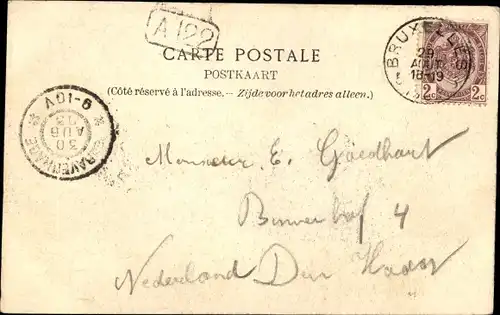 A 122
CARTE POSTALE
POSTKAART
(Côté réservé à l'adresse. — Zijde voor het adres alleen.)
BRUXELLES
29
AOUT
18-19
2c 2c
* A D1-6 *
30
AUG
03
'S GRAVENHAGE
Monsieur E. Goedhart
Binnenhof 4
Nederland Den Haag